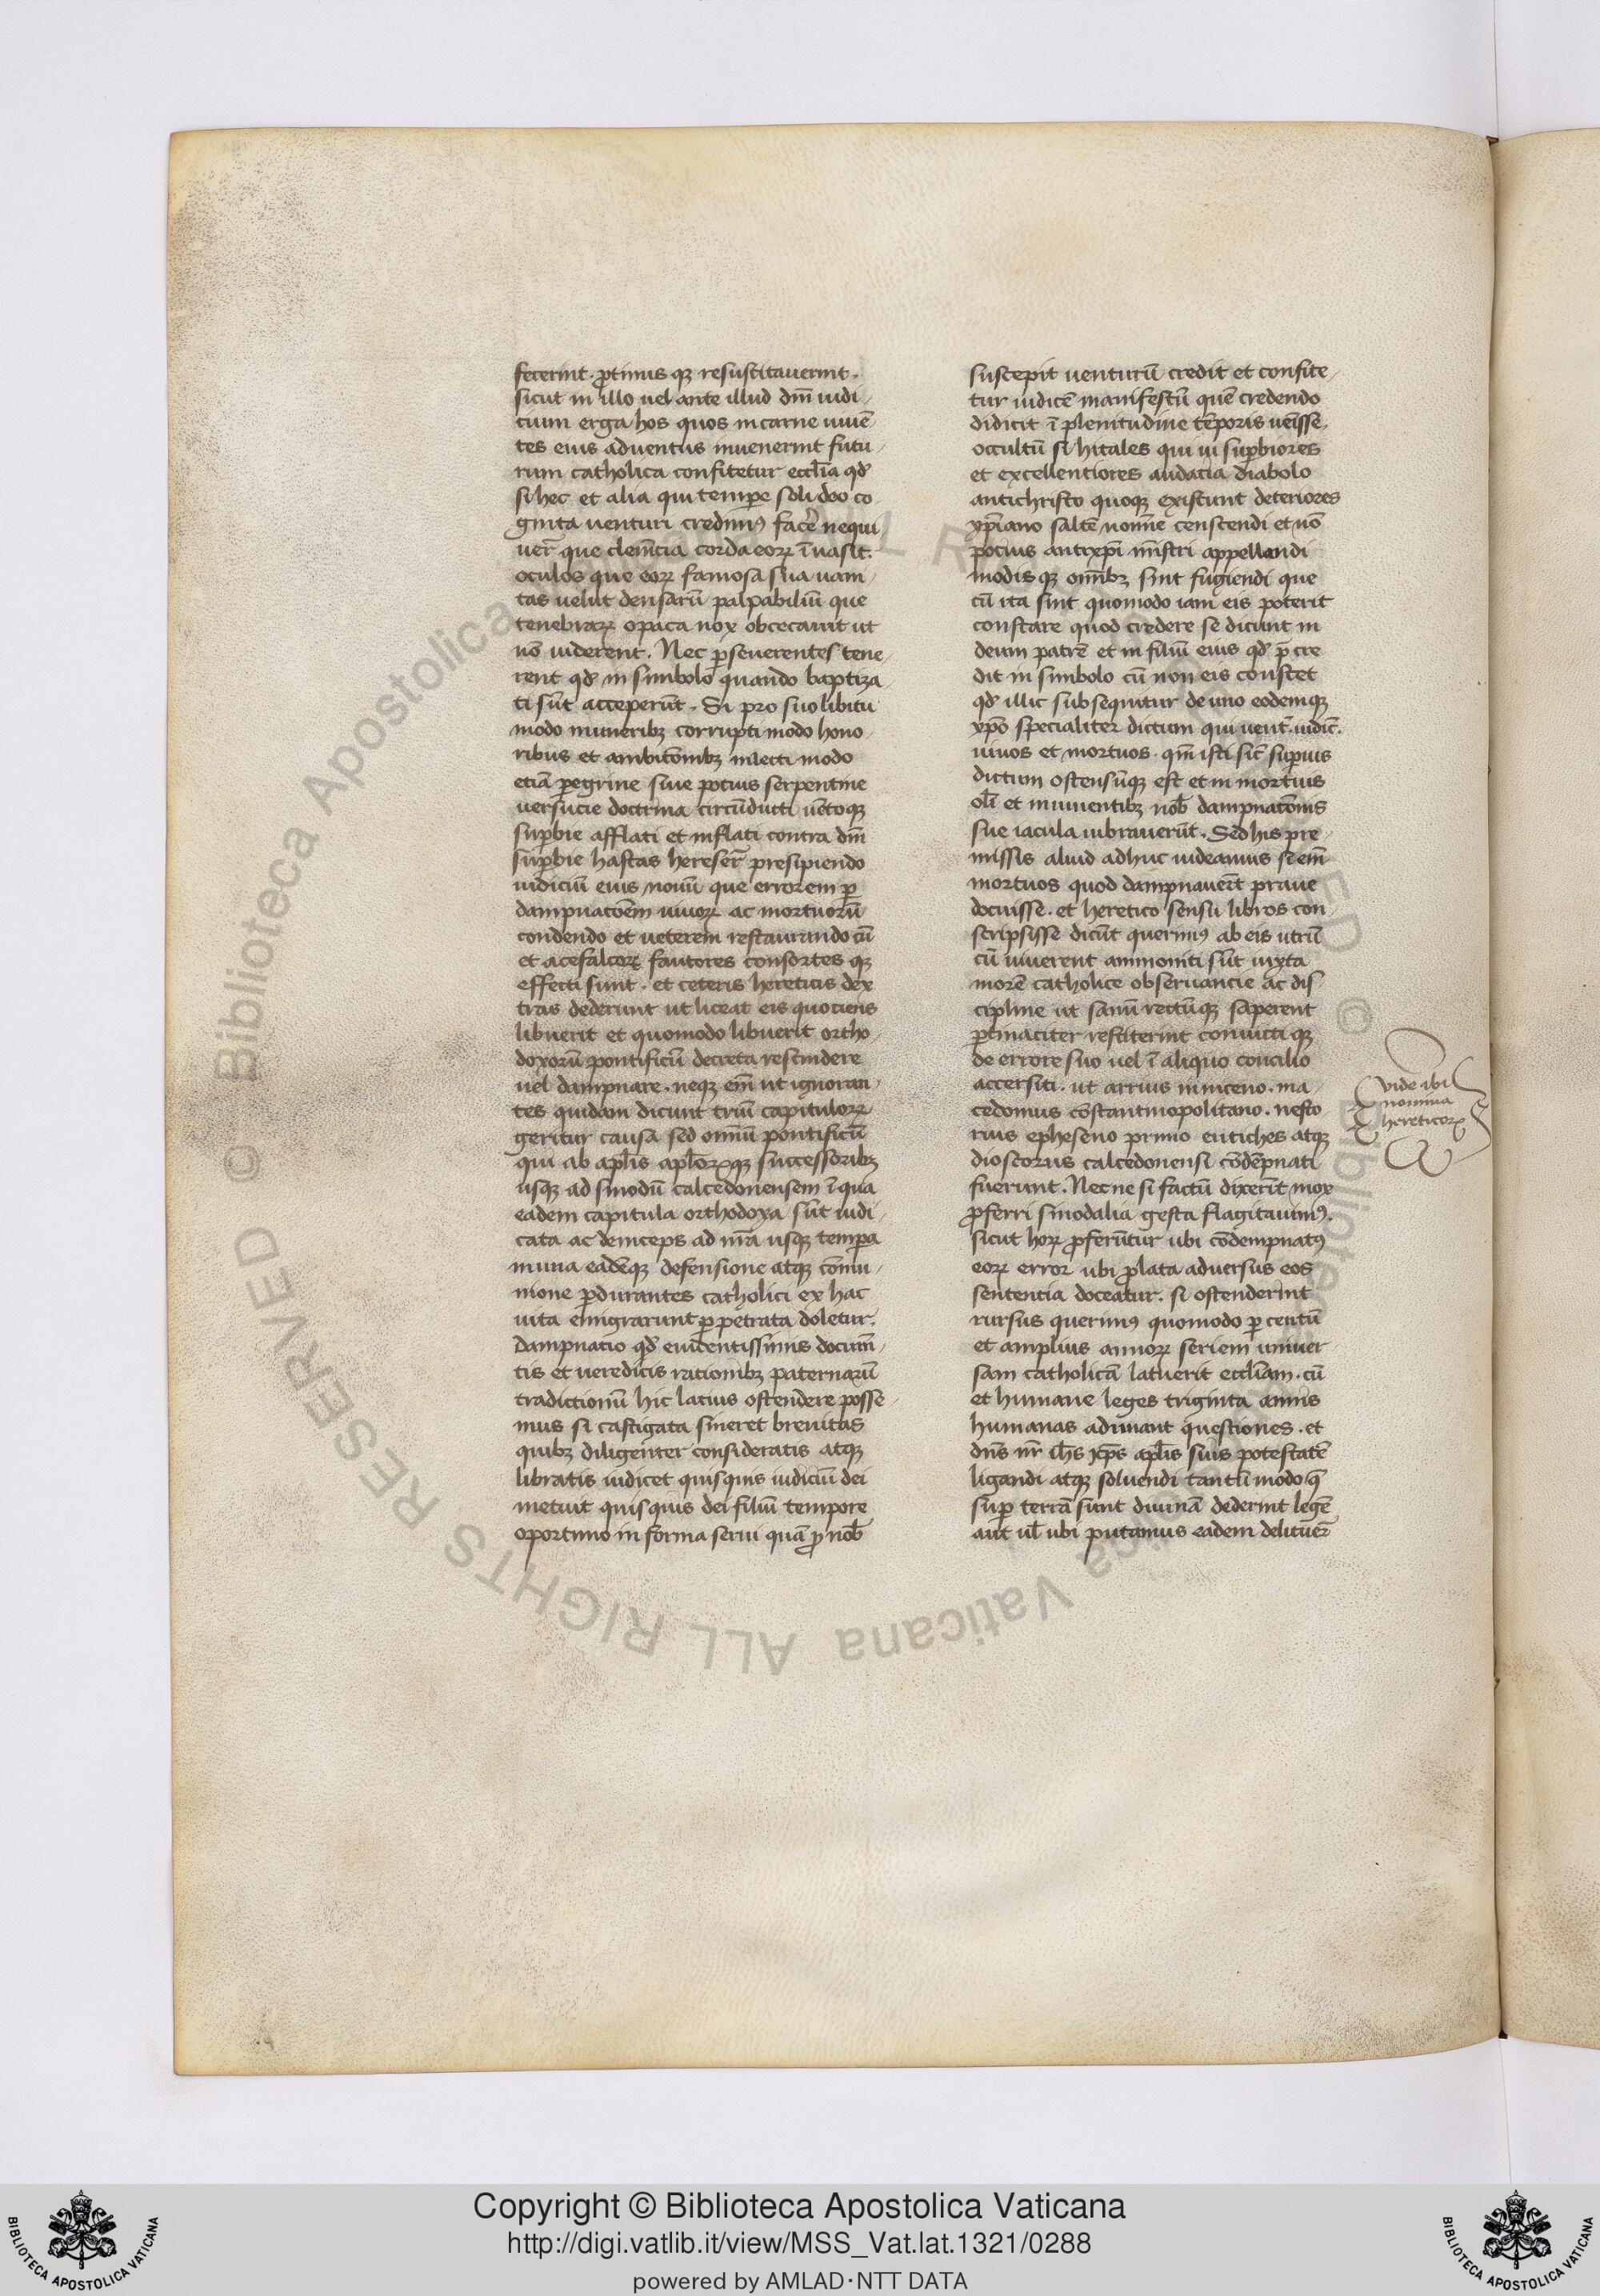 fecerint. ꝓtinus qꝫ resuscitauerint.
sicut in illo uel ante illud dn̄i iudi
cium erga hos quos in carne uiuē
tes eius aduentus inuenerint futu
rum catholica confitetur eccl̄ia qd̛
si hec et alia qui tempe soli deo co
gnita uenturi credimꝰ facē nequi
uer̄ que clem̄cia corda eoꝝ ī uasit.
oculos que eoꝝ famosa sua uani
tas uelut densarū palpabiliū que
tenebraꝝ opaca nox obcecauit ut
nō uiderent. Nec ꝑseuerentes tene
rent qd̛ in simbolo quando baptiza
ti sūt acceperūt. Si pro suo libitu
modo muneribꝫ corrupti modo hono
ribus et ambicōnibꝫ illecti modo
etiā ꝑegrine siue pocius serpentine
uersucie doctrina circūducti uētoqꝫ
suꝑbie afflati et inflati contra dn̄i
suꝑbie hastas presipiendo
iudiciū eius nouū que errorem ꝑ
dampnacōem uiuoꝝ ac mortuorū
condendo et ueterem restaurando cū
et acefaloꝝ fautores consortes qꝫ
effecti sunt. et ceteris hereticis dex
tras dederunt ut liceat eis quociens
libuerit et quomodo libuerit ortho
doxorū pontificū decreta rescindere
uel dampnare. neqꝫ em̄ ut ignoran
tes quidam dicunt triū capituloꝝ
geritur causa sed om̄iū pontificū
qui ab apl̄is apl̄oꝝqꝫ successoribꝫ
usqꝫ ad sinodū calcedonensem ī qua
eadem capitula orthodoxa sūt iudi
cata ac deinceps ad nr̄a usqꝫ tempa
in una eadēqꝫ defensione atqꝫ cōmu
nione ꝑdurantes catholici ex hac
uita emigrarunt ꝑpetrata doletur.
dampnatio qd̛ euidentissimis docum̄
tis et ueredicis racionibꝫ paternarū
tradictionū hic lacius ostendere posse
mus si castigata sineret breuitas
quibꝫ diligenter consideratis atqꝫ
libratis iudicet quisquis iudiciū dei
metuit quisquis dei filiū tempore
oportuno in forma serui quā ꝓ nob̄
suscepit uenturū credit et confite
tur iudicē manifestū quē credendo
didicit ī plenitudine tēporis uēisse.
occultū si hitales qui iu suꝑbiores
et excellentiores audacia diabolo
antichristo quoqꝫ existunt deteriores
xp̄iano saltē nomīe censcendi et nō
pocius antixp̄i mīstri appellandi
modis qꝫ om̄ibꝫ sint fugiendi que
cū ita sint quomodo iam eis poterit
constare quod credere se dicunt in
deum patrē et in filiū eius qd̛ ꝑ cre
dit in simbolo cū non eis constet
qd̛ illic subsequitur de uno eodemqꝫ
xp̄o specialiter dictum qui uent̄. iudic̄.
uiuos et mortuos. qm̄ isti sic̄ suꝑius
dictum ostensūqꝫ est et in mortuis
ol̄i et in uiuentibꝫ nob̄ dampnacōnis
sue iacula uibrauerūt. Sed his pre
missis aliud adhuc uideamus si em̄
mortuos quod dampnauerūt praue
docuisse. et heretico sensu libros con
scripsisse dicūt querimꝰ ab eis utrū
cū uiuerent ammoniti sūt iuxta
morē catholice obseruancie ac dis
cipline ut sanū rectūqꝫ saperent
ꝑtinaciter restiterint conuicti qꝫ
de errore suo uel ī aliquo concilio
accersiti. ut arrius in niceno. ma
cedonius cōstantinopolitano. nesto
rius epheseno primo eutiches atqꝫ
dioscorus calcedonensi cōdēpnati
fuerunt. Nec ne si factū dixerīt mox
ꝓferri sinodalia gesta flagitauimꝰ.
sicut hoꝝ ꝓferūtur ubi cōdempnatꝰ
eoꝝ error ubi ꝓlata aduersus eos
sententia doceatur. si ostenderint
rursus querimꝰ quomodo ꝑ centū
et amplius annoꝝ seriem uniuer
sam catholicā latuerit eccl̄iam. cū
et humane leges triginta annis
humanas adimant questiones. et
dn̄s nr̄ ih̄s xp̄s apl̄is suis potestatē
ligandi atqꝫ soluendi tantū modo q̄
suꝑ terrā sunt diuinā dederint legē
aut ul̄ ubi putamus eadem delituer̄
vide ibi
nomina
hereticoꝝ
© Biblioteca Apostolica Vaticana ALL RIGHTS RESERVED
Copyright © Biblioteca Apostolica Vaticana
http://digi.vatlib.it/view/MSS_Vat.lat.1321/0288
powered by AMLAD·NTT DATA
BIBLIOTECA APOSTOLICA VATICANA
BIBLIOTECA APOSTOLICA VATICANA